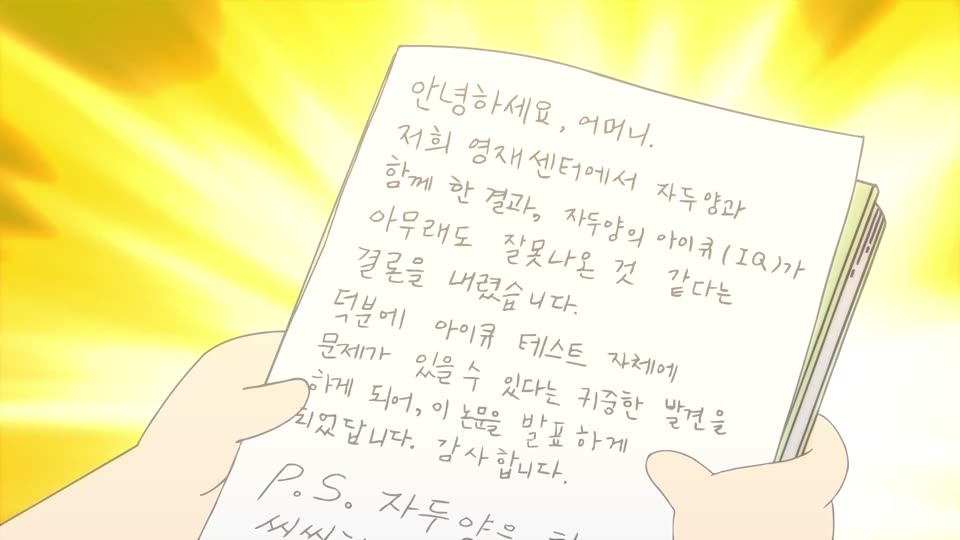 안녕하세요, 어머니.
저희 영재센터에서 자두양과
함께 한 결과, 자두양의 아이큐(IQ)가
아무래도 잘못나온 것 같다는
결론을 내렸습니다.
덕분에 아이큐 테스트 자체에
문제가 있을 수 있다는 귀중한 발견을
하게 되어, 이 논문을 발표하게
되었답니다. 감사합니다.
P.S. 자두양은